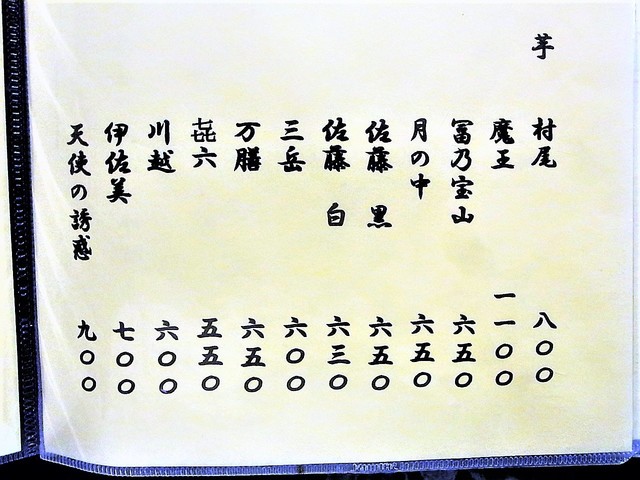 芋
村尾 八〇〇
魔王 一一〇〇
冨乃宝山 六五〇
月の中 六五〇
佐藤 黒 六五〇
佐藤 白 六三〇
三岳 六〇〇
万膳 六五〇
㐂六 五五〇
川越 六〇〇
伊佐美 七〇〇
天使の誘惑 九〇〇